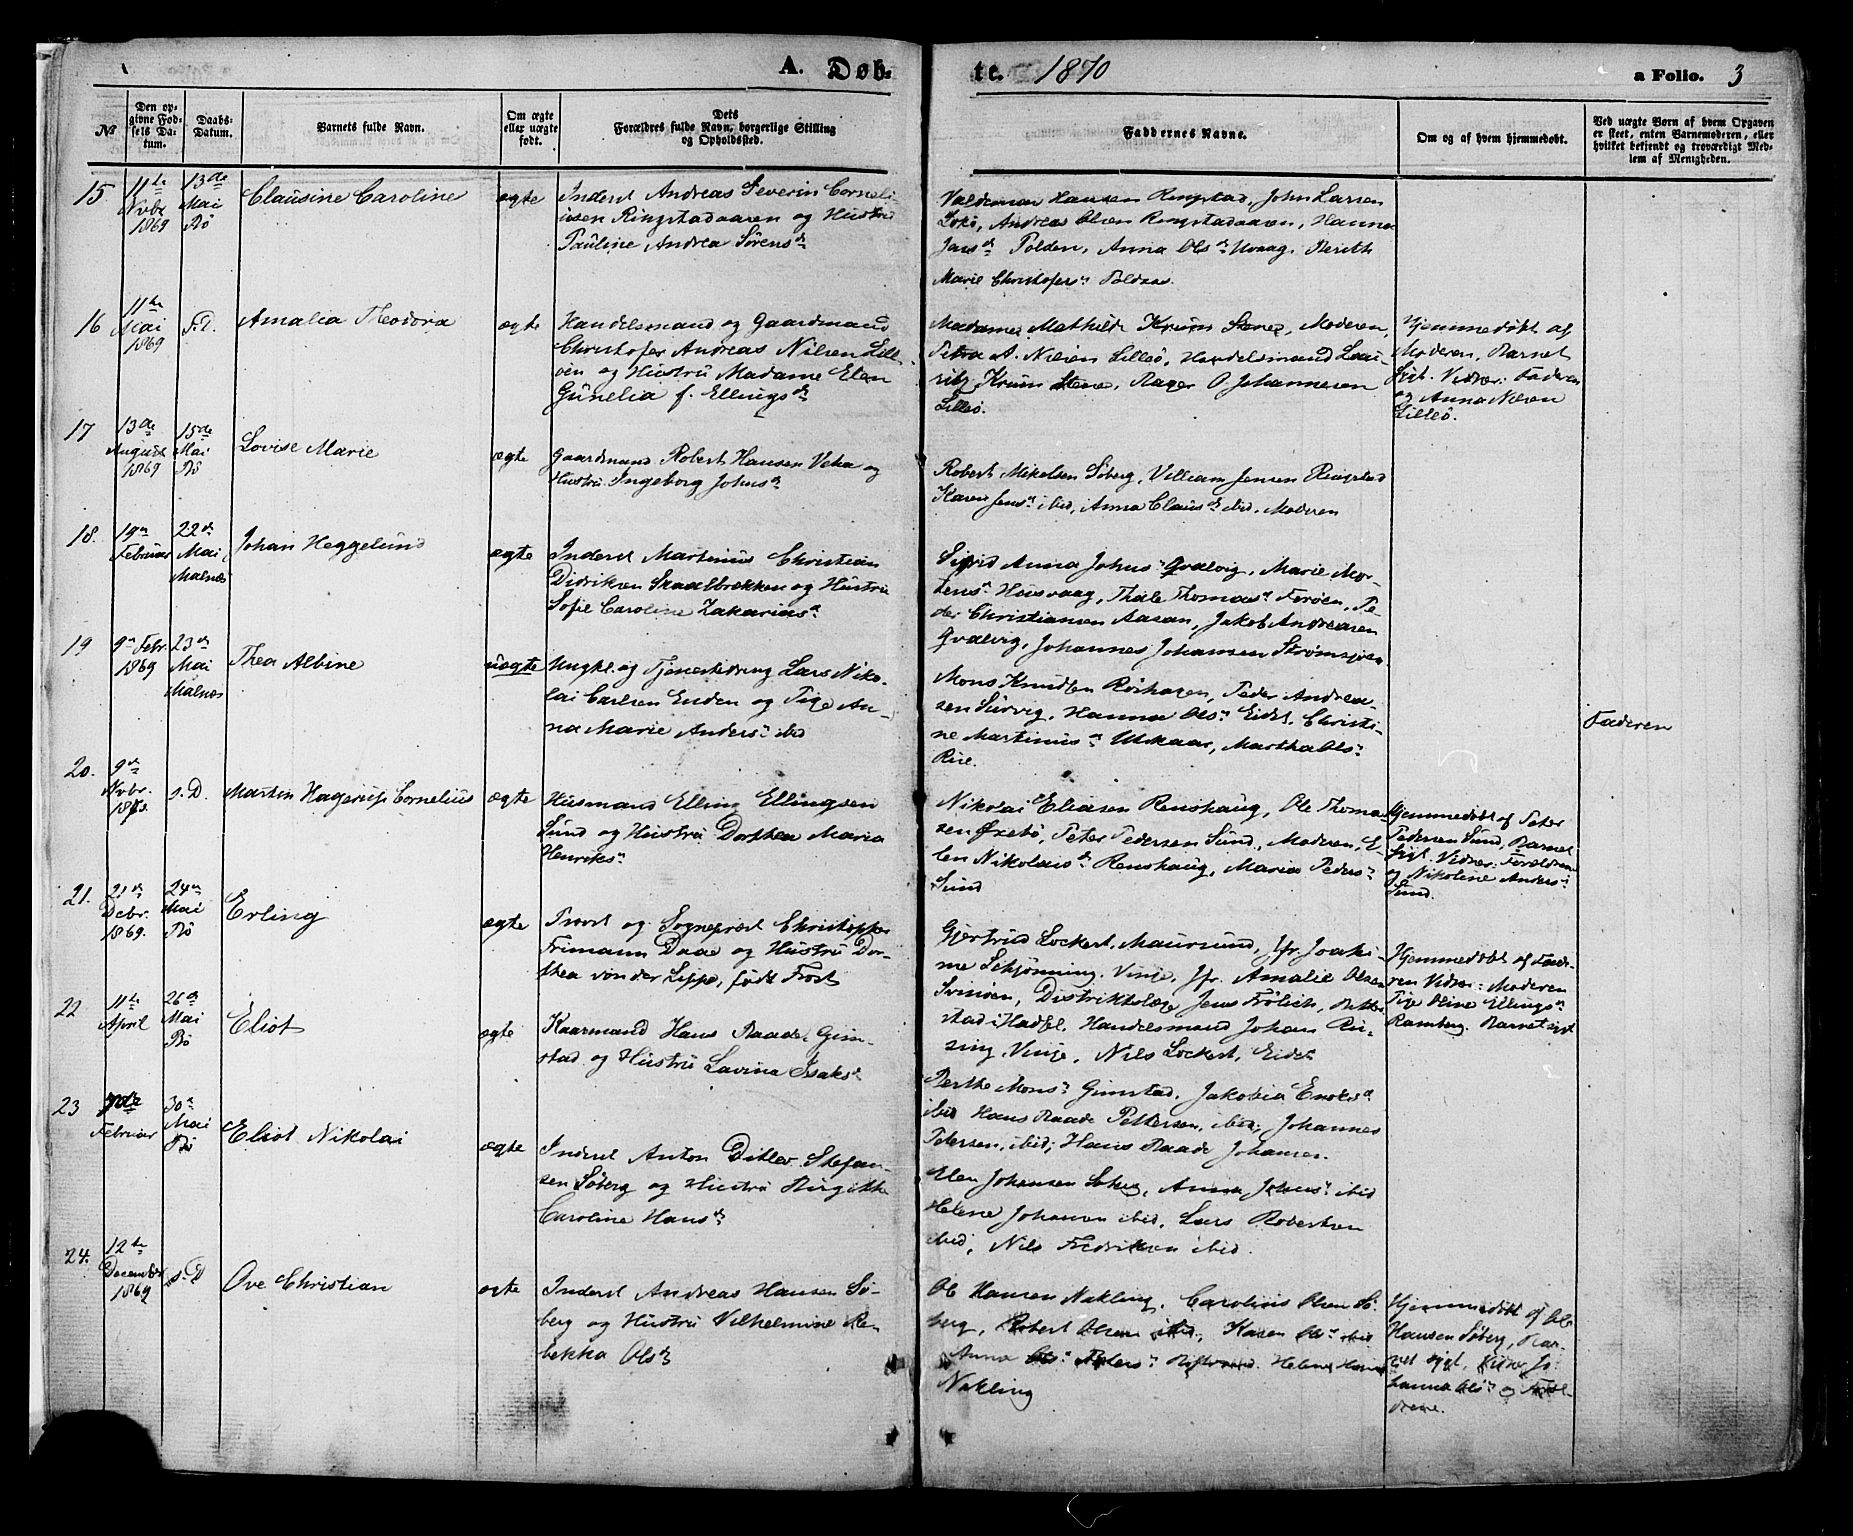 A. Døb-
te. 1870
a Folio. 3
№
Den op-
givne Fød-
sels Da-
tum.
Daabs-
Datum.
Barnets fulde Navn.
Om ægte
eller uægte
født.
Dets
Forældres fulde Navn, borgerlige Stilling
og Opholdssted.
Faddernes Navne.
Om og af hvem hjemmedøbt.
Ved uægte Børn af hvem Opgaven
er skeet, enten Barnemoderen, eller
hvilket bekjendt og troværdigt Med-
lem af Menigheden.
15
11te
Nvbr
1869
13de
Mai
Bö
Clausine Caroline
ægte
Inderst Andreas Severin Corneli
usen Ringstadaaren og Hustru
Pauline Andrea Sörensd
Valdemar Hansen Ringstad, John Larsen
Andreas Olsen Ringstadaaren, Hanna
Jensd Polden, Anna Olsd Uvaag, Berith
Marie Christofersd
16
11te
Mai
1869
s.D.
Amalia Theodora
ægte
Handelsmand og Gaardmand
Christofer Andreas Nilsen Lill-
öen og Hustru Madame Elen
Gunelia f. Ellingsd
Madame Mathilde Krum Stene, Moderen,
Petra A. Nilsen Lilleö, Handelsmand Lau
ritz Krum Stene, Rager O. Johannesen
Lilleö.
Hjemmedøbt af
Moderen, Barnet
sygt. Vidner: Faderen
og Anna Nilsen
Lilleö.
17
13de
August
1869
15de
Mai
Bö
Lovise Marie
ægte
Gaardmand Robert Hansen Veha og
Hustru Ingeborg Johnsd
Robert Mikelsen Söberg, Villiam Jensen Ringstad
Karen Jensd ibid, Anna Clausd ibid, Moderen
18.
19n
Februar
22d
Mai
Malnes
Johan Heggelund
ægte
Inderst Martinus Christian
Didriksen Skaalbrækken og Hustru
Sofie Caroline Zakariasd
Sigrid Anna Johnsd Qvalvig, Marie Mor-
tensd Hovsvaag, Thale Thomasd Foröen, Pe-
der Christiansen Aasan, Jakob Andreasen
Qvalvig, Johannes Johansen Strömsjöen
19
9n Febr.
1869
23d
Mai
Malnes
Thea Albine
uægte
Ungkl. og Tjenestedreng Lars Niko-
lai Carlsen Enden og Pige An-
na Marie Andersd ibid
Mons Knudsen Röshagen, Peder Andrea-
sen Survig, Hanna Olsd Eidet, Christi-
ne Martinusd Utskaar, Martha Olsd
Rise.
Faderen
20.
9d
Nvbr.
s.D.
Martin Hagerup Cornelius
ægte
Husmand Elling Ellingsen
Sund og Hustru Dorthea Maria
Henriksd
Nikolai Eliasen Renshaug, Ole Thoma-
sen Öxebö, Peter Pedersen Sund, Moderen, E-
len Nikolaisd Renshaug, Maria Pedersd
Sund
Hjemmedøbt af Peter
Pedersen Sund, Barnet
sygt. Vidner: Forældrene
og Nikoline Andersd
Sund.
21.
21d
Debr.
1869.
24n
Mai
Bö
Erling
ægte
Provst og Sogneprest Christopher
Frimann Daae og Hustru Dor-
thea von der Lippe, født Frost
Gjertrud Lockert, Maursund, Jfr. Joaki-
me Schjönning, Vinje, Jfr. Amalie Olsen
Svinöen, Distriktslæge Jens Frölich, Rekke-
stad i Hadsel, Handelsmand Johan Ris-
sing, Vinje, Nils Lockert, Eidet
Hjemmedøbt af Fade-
ren Vidner: Moderen
Pige Oline Ellingsd
Ramberg. Barnet sygt
22
11te
April
26d
Mai
Bö
Eliot
ægte
Kaarmand Hans Raade, Gim-
stad og Hustru Lavina Isaksd
Berthe Monsd Gimstad, Jakobia Enoksd
ibid Hans Raade Pettersen, ibid; Johannes
Petersen, ibid; Hans Raade Johansen.
23
Februar
30n
Mai
Bö
Eliot Nikolai
ægte
Inderst Anton Ditlev Stefan-
sen Söberg og Hustru Birgitte
Caroline Hansd
Elen Johansen Söberg, Anna Johnsd ibid
Helene Johansen ibid, Lars Robertsen
ibid, Nils Fredriksen ibid.
24.
12te
December
1869
s.D
Ove Christian
ægte
Inderst Andreas Hansen Sö-
berg og Hustru Vilhelmine Re-
bekka Olsd
Ole Hansen Nykling, Carolius Olsen Sö-
berg, Robert Olsen ibid, Karen Olsd ibid
Anna Petersd Helene Hansd
Nykling
Hjemmedøbt af Ole
Hansen Söberg, Bar-
net sygt, Vidner Jo-
hanna Olsd og Foræl-
drene.